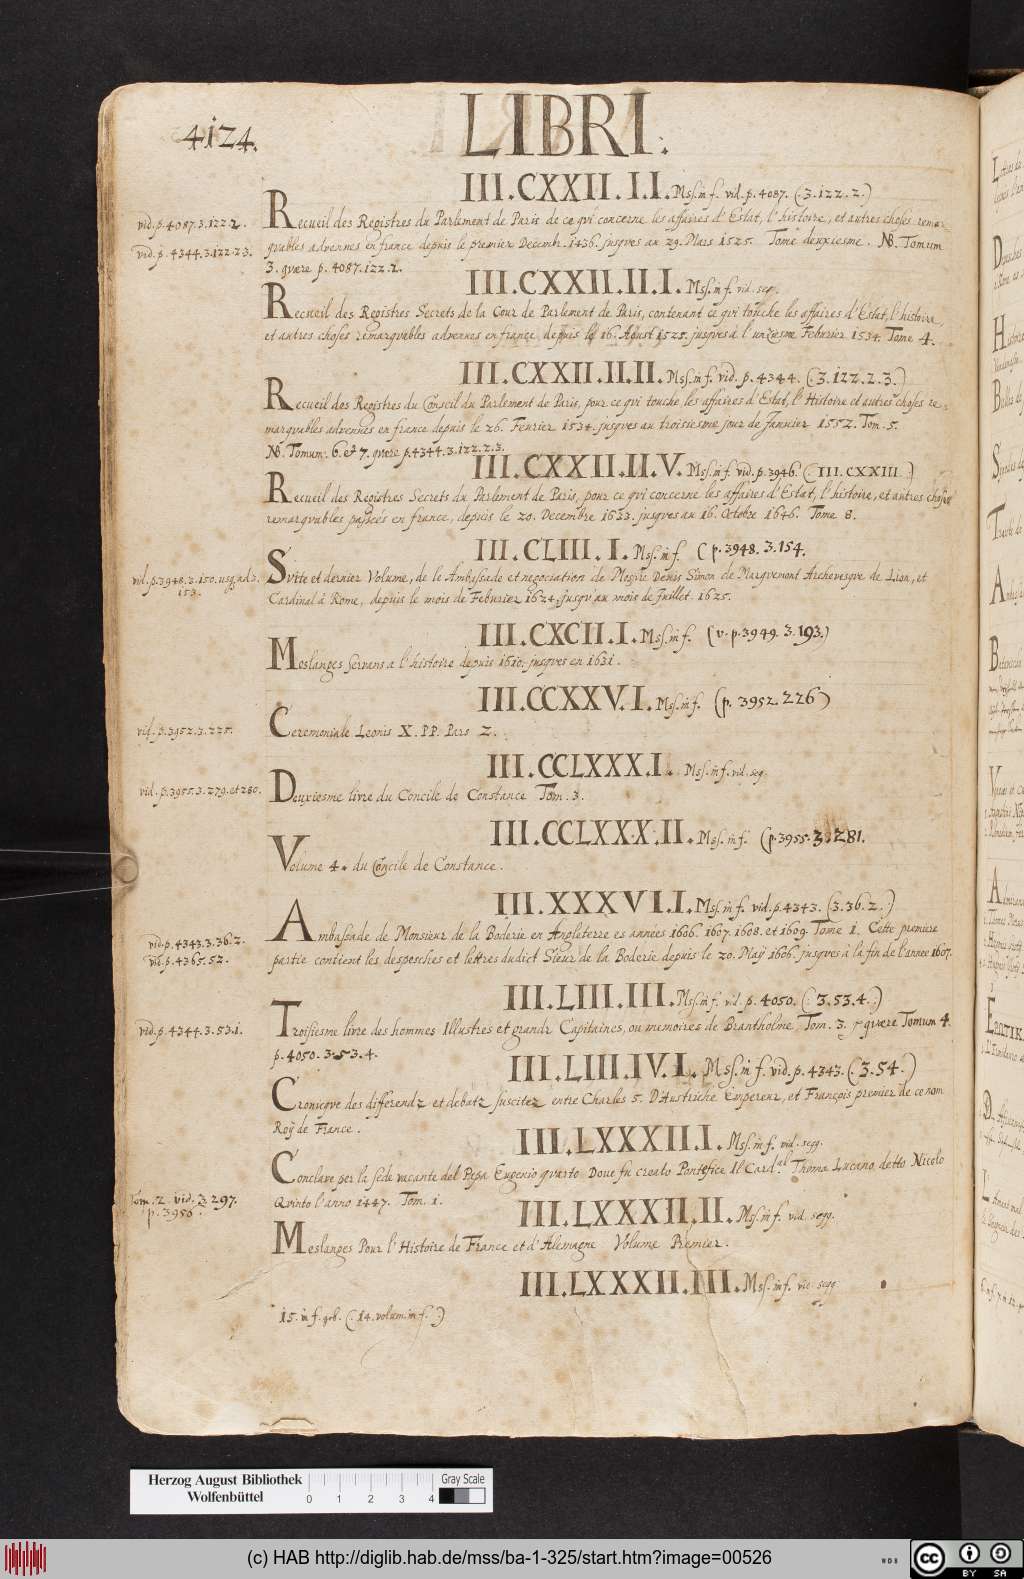 4124.
LIBRI.
III.CXXII.I.I. Mss. in f. vid. p. 4087. (.3.122.2.)
vid. p. 4087.3.122.2.
vid. p. 4344.3.122.2.3.
Recueil des Registres du Parlement de Paris de ce qvi concerne les affaires d'Estat, l'histoire, et autres choses remar-
qvables advennes en france depuis le premier Decembr. 1436. jusqves au 29. Mars 1525. Tome deuxiesme. NB. Tomum
3. qvære p. 4087.122.2.
III.CXXII.II.I. Mss. in f. vid. seq.
Recueil des Registres Secrets de la Cour de Parlement de Paris, contenant ce qvi touche les affaires d'Estat, l'histoire,
et autres choses remarqvables advennes en france depuis le 16. Agust 1525. jusqves à l'unziesme Februrier 1534. Tome 4.
III.CXXII.II.II. Mss. in f. vid. p. 4344. (.3.122.2.3.)
Recueil des Registres du Conseil du Parlement de Paris, pour ce qvi touche les affaires d'Estat, l'Histoire et autres choses re-
marqvables advennes en france depuis le 26. Feurier 1534. jusqves au troisiesme jour de Januier 1552. Tom. 5.
NB. Tomum. 6. et 7. qvære p. 4344.3.122.2.3.
III.CXXII.II.V. Mss. in f. vid. p. 3946. (III.CXXIII.)
Recueil des Registres Secrets du Parlement de Paris, pour ce qvi concerne les affaires d'Estat, l'histoire, et autres choses
remarqvables passées en france, depuis le 20. Decembre 1633. jusqves au 16. Octobre 1646. Tome 8.
III.CLIII.I. Mss. in f. (p. 3948. 3.154.
vid. p. 3948.3.150. usq. ad 3.
153.
Svite et dernier Volume, de le Ambassade et negociation de Messire Denis Simon de Marqvemont Archevesqve de Lion, et
Cardinal à Rome, depuis le mois de Februrier 1624. jusqv' au mois de Juillet 1625.
III.CXCII.I. Mss. in f. (v. p. 3949. 3.193.)
Meslanges servans a l'histoire depuis 1610. jusqves en 1631.
III.CCXXV.I. Mss. in f. (p. 3952. 226)
vid. p. 3952.3.225.
Ceremoniale Leonis X. PP. Pars 2.
III.CCLXXX.I. Mss. in f. vid. seq.
vid. p. 3955.3.279. et 280.
Deuxiesme livre du Concile de Constance Tom. 3.
III.CCLXXX.II. Mss. in f. (p. 3955. 3.281.
Volume 4. du Concile de Constance.
III.XXXVI.I. Mss. in f. vid. p. 4343. (3.36.2.)
vid. p. 4343.3.36.2.
vid. p. 4365.52.
Ambassade de Monsieur de la Boderie en Angleterre es années 1606. 1607. 1608. et 1609. Tome 1. Cette premiere
partie contient les despesches et lettres dudict Sieur de la Boderie depuis le 20. May 1606. jusqves à la fin de l'annee 1607.
III.LIII.III. Mss. in f. vid. p. 4050. (.3.53.4.)
vid. p. 4344.3.53.1.
Troisiesme livre des hommes Illustres et grandz Capitaines, ou memoires de Brantholme. Tom. 3. qvære Tomum 4.
p. 4050. 3.53.4.
III.LIII.IV.I. Mss. in f. vid. p. 4343. (.3.54.)
Croniqve des differendz et debatz suscitez entre Charles 5. D'Austriche Empereur, et François premier de ce nom
Roy de France.
III.LXXXII.I. Mss. in f. vid. seqq.
Conclave per la sede vacante del Papa Eugenio qvarto Doue fu creato Pontefice Il Card.al Thoma Lucano detto Nicolo
Qvinto l'anno 1447. Tom. 1.
Tom. 2. vid. 3.297.
p. 3956.
III.LXXXII.II. Mss. in f. vid. seqq.
Meslanges Pour l'Histoire de France et d'Alemagne Volume Premier.
III.LXXXII.III. Mss. in f. vid. seqq.
15. in f. geb. (.14. volum. in f.)
Herzog August Bibliothek
Wolfenbüttel
0 1 2 3 4
Gray Scale
(c) HAB http://diglib.hab.de/mss/ba-1-325/start.htm?image=00526
WDB
CC BY SA